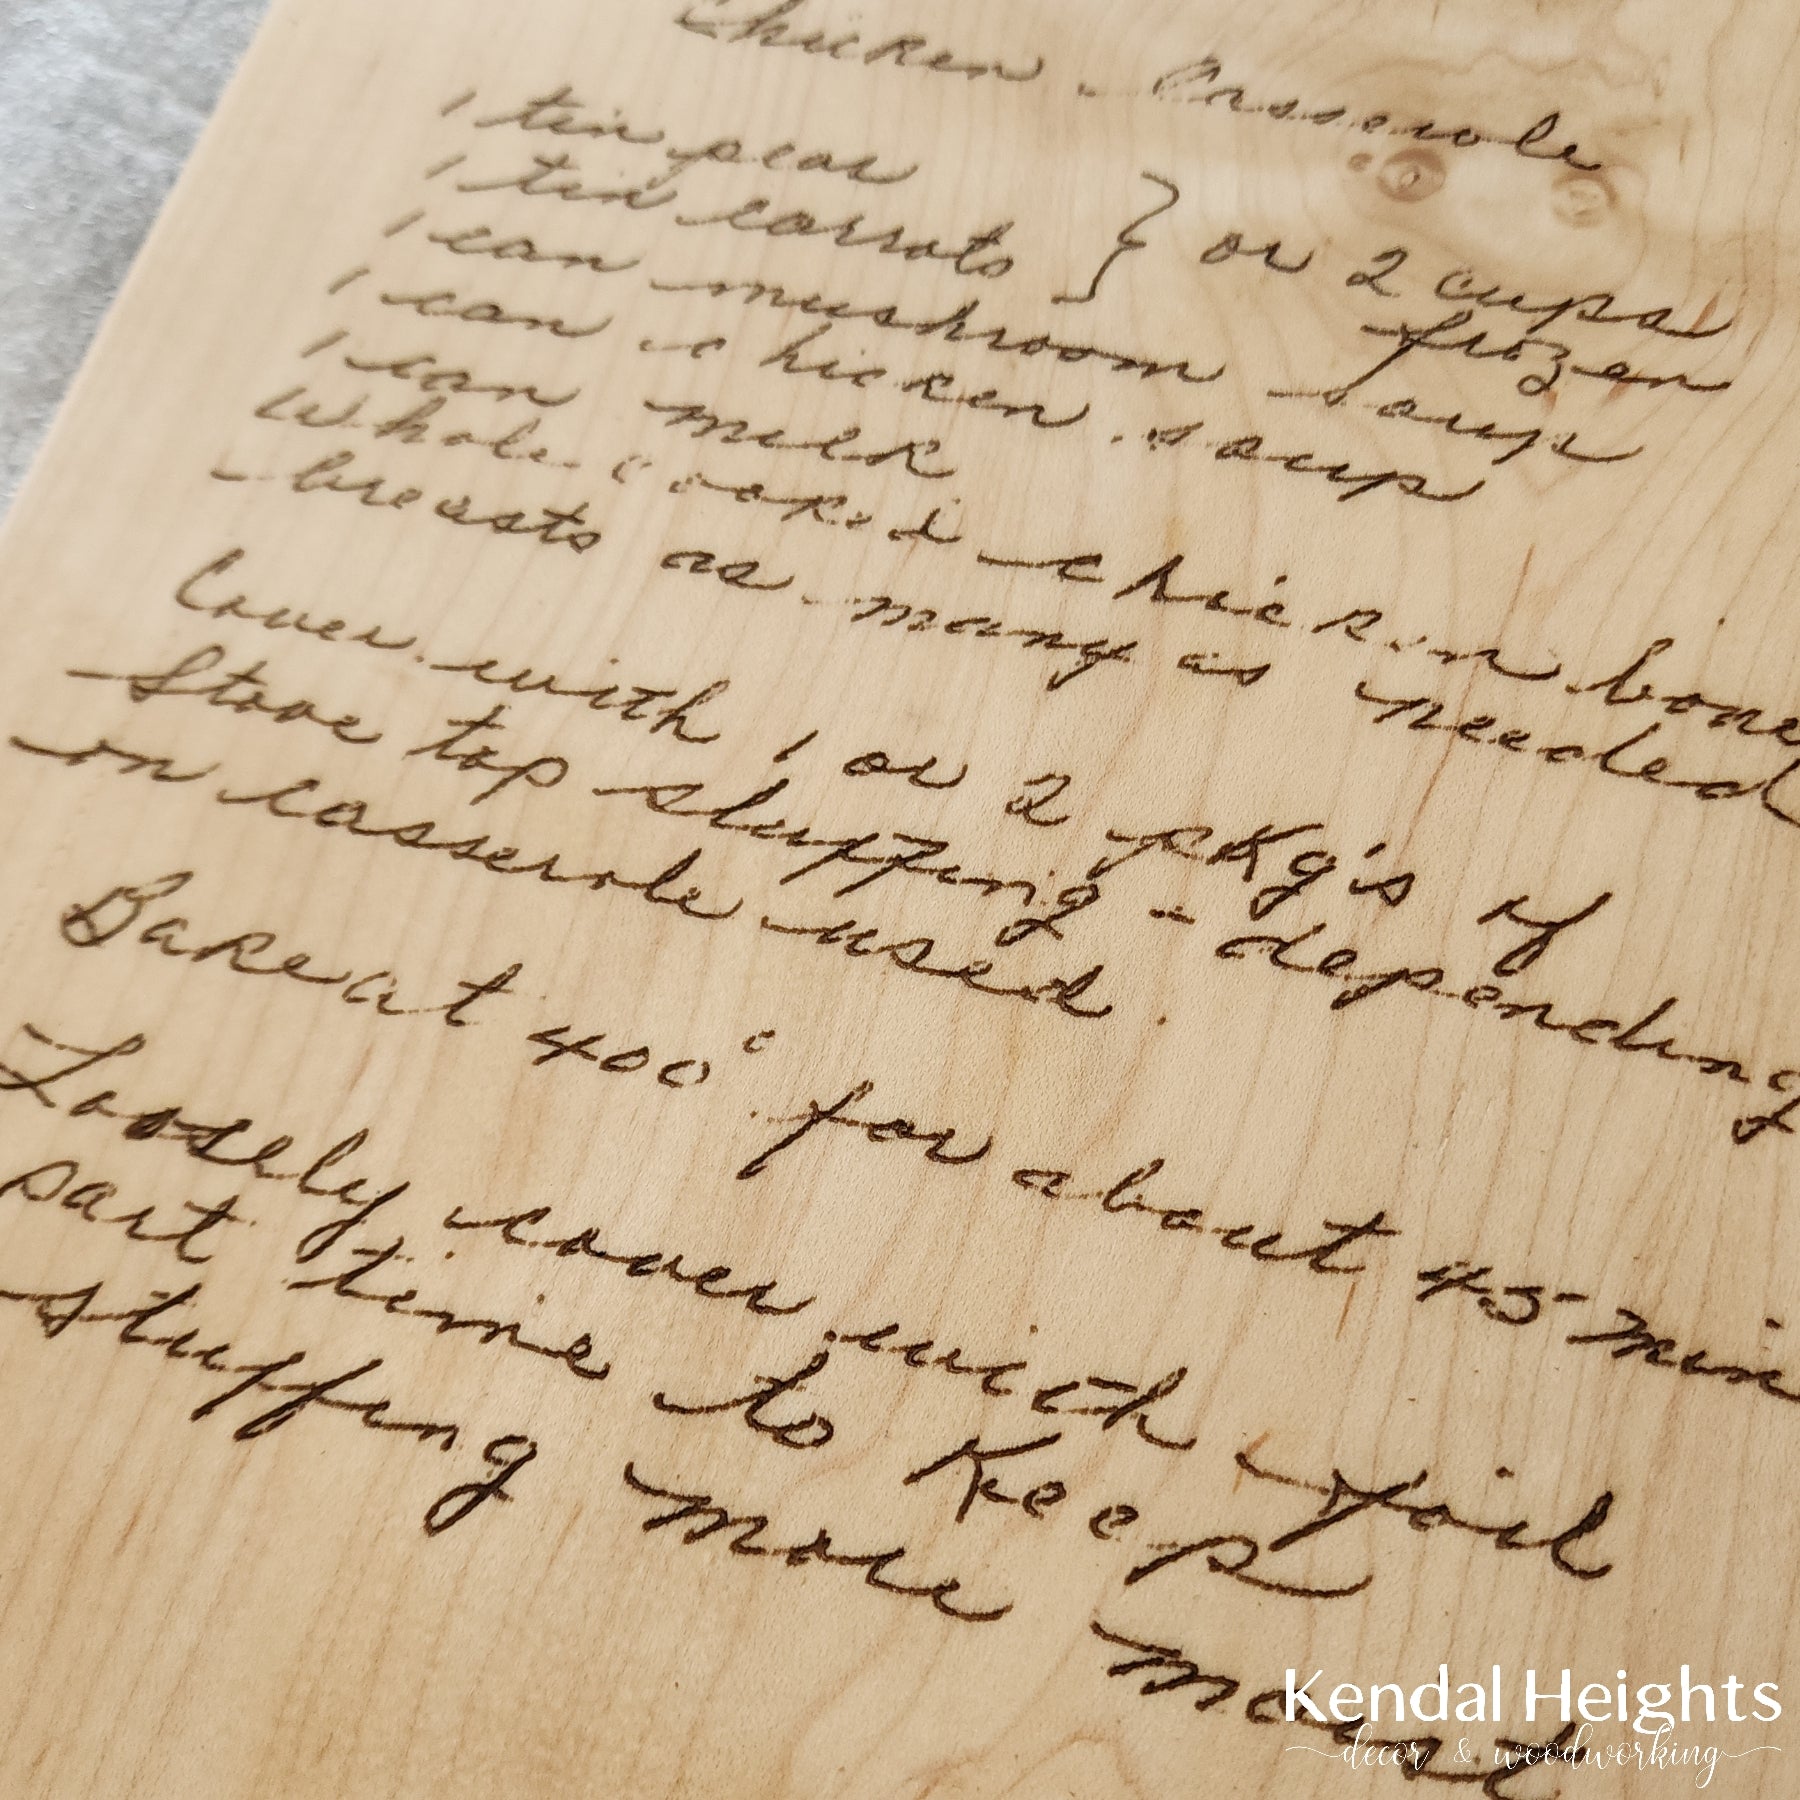 Chicken Casserole
1 tin peas
1 tin carrots } or 2 cups frozen
1 can mushroom soup
1 can chicken soup
1 can milk
Whole cooked chicken bone
breasts as many as needed
Cover with 1 or 2 pkg's of
Stove top stuffing - depending
on casserole used.
Bake at 400° for about 45 min
Loosely cover with foil
part time to keep
stuffing more moist
Kendal Heights
decor & woodworking